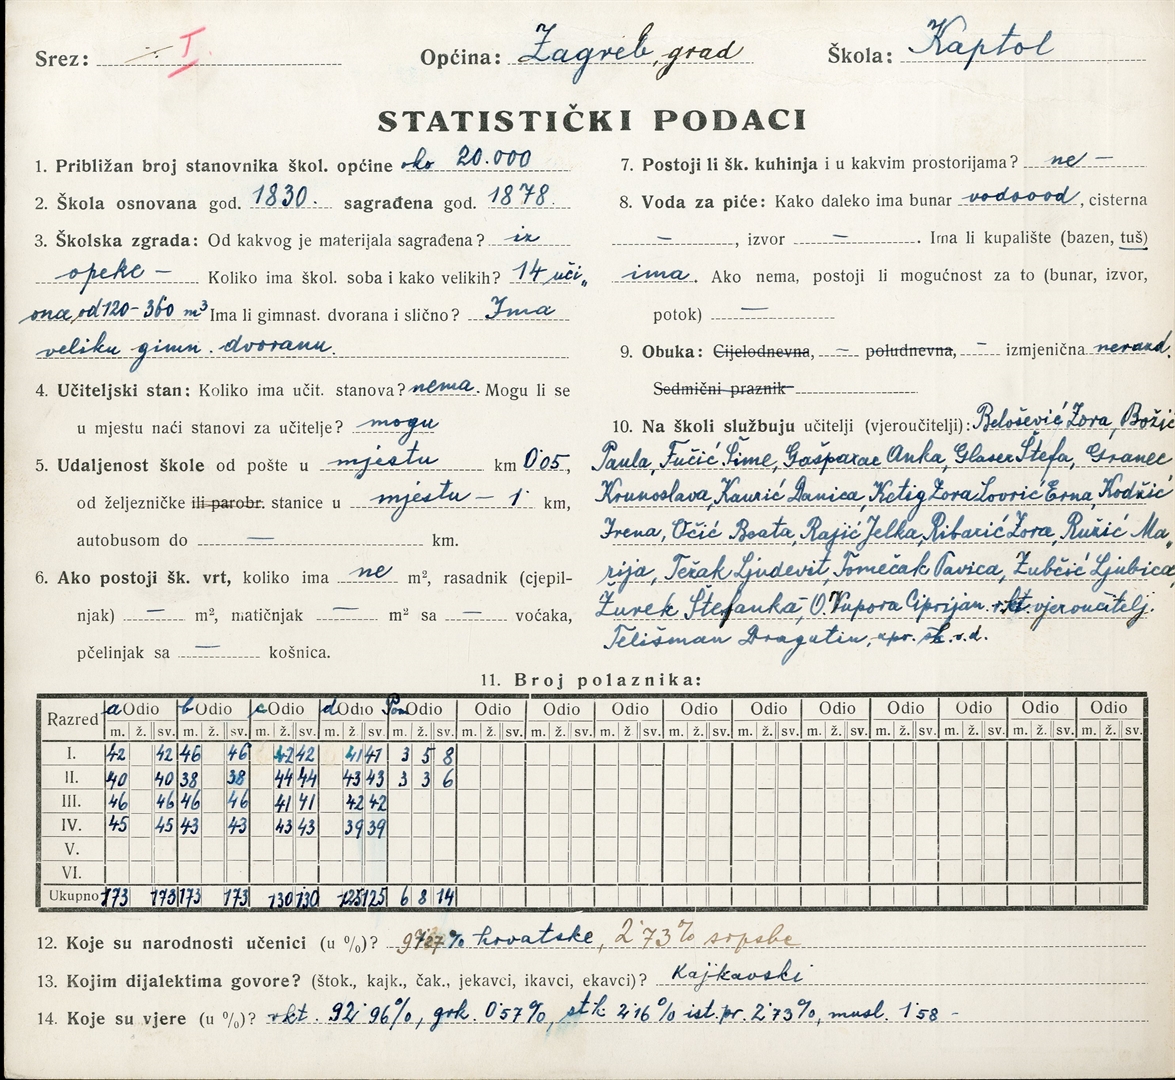 Srez: I Općina: Zagreb, grad Škola: Kaptol
STATISTIČKI PODACI
1. Približan broj stanovnika škol. općine oko 20.000
2. Škola osnovana god. 1830. sagrađena god. 1878.
3. Školska zgrada: Od kakvog je materijala sagrađena? iz
opeke – Koliko ima škol. soba i kako velikih? 14 uči„
ona, od 120-360 m³ Ima li gimnast. dvorana i slično? Ima
veliku gimn. dvoranu.
4. Učiteljski stan: Koliko ima učit. stanova? nema. Mogu li se
u mjestu naći stanovi za učitelje? mogu
5. Udaljenost škole od pošte u mjestu km 0'05,
od željezničke ili parobr. stanice u mjestu – 1 km,
autobusom do — km.
6. Ako postoji šk. vrt, koliko ima ne m², rasadnik (cjepil-
njak) — m², matičnjak — m² sa — voćaka,
pčelinjak sa — košnica.
7. Postoji li šk. kuhinja i u kakvim prostorijama? ne –
8. Voda za piće: Kako daleko ima bunar vodovod, cisterna
—, izvor —. Ima li kupalište (bazen, tuš)
ima. Ako nema, postoji li mogućnost za to (bunar, izvor,
potok) —
9. Obuka: Cijelodnevna, — poludnevna, — izmjenična nerazd.
Sedmični praznik
10. Na školi službuju učitelji (vjeroučitelji): Belošević Zora, Božić
Paula, Fučić Šime, Gašparac Anka, Glaser Štefa, Granec
Krunoslava, Kaurić Danica, Ketig Zora, Lovrić Erna, Kodžić
Irena, Očić Beata, Rajić Jelka, Ribarić Zora, Ružić Ma„
rija, Težak Ljudevit, Tomečak Pavica, Zubčić Ljubica,
Žurek Štefanka, O. Vupora Ciprijan rkt. vjeroučitelj.
Telišman Dragutin, upr. šk. v.d.
11. Broj polaznika:
Razred a Odio b Odio c Odio d Odio Pom Odio Odio Odio Odio Odio Odio Odio Odio Odio Odio
m. ž. sv. m. ž. sv. m. ž. sv. m. ž. sv. m. ž. sv. m. ž. sv. m. ž. sv. m. ž. sv. m. ž. sv. m. ž. sv. m. ž. sv. m. ž. sv. m. ž. sv. m. ž. sv.
I. 42 42 46 46 42 42 41 41 3 5 8
II. 40 40 38 38 44 44 43 43 3 3 6
III. 46 46 46 46 41 41 42 42
IV. 45 45 43 43 43 43 39 39
V.
VI.
Ukupno 173 173 173 173 130 130 125 125 6 8 14
12. Koje su narodnosti učenici (u %)? 97'27 % hrvatske, 2'73% srpske
13. Kojim dijalektima govore? (štok., kajk., čak., jekavci, ikavci, ekavci)? Kajkavski
14. Koje su vjere (u %)? rkt. 92'96%, grk. 0'57%, stk 2'16% ist. pr. 2'73%, musl. 1'58 –